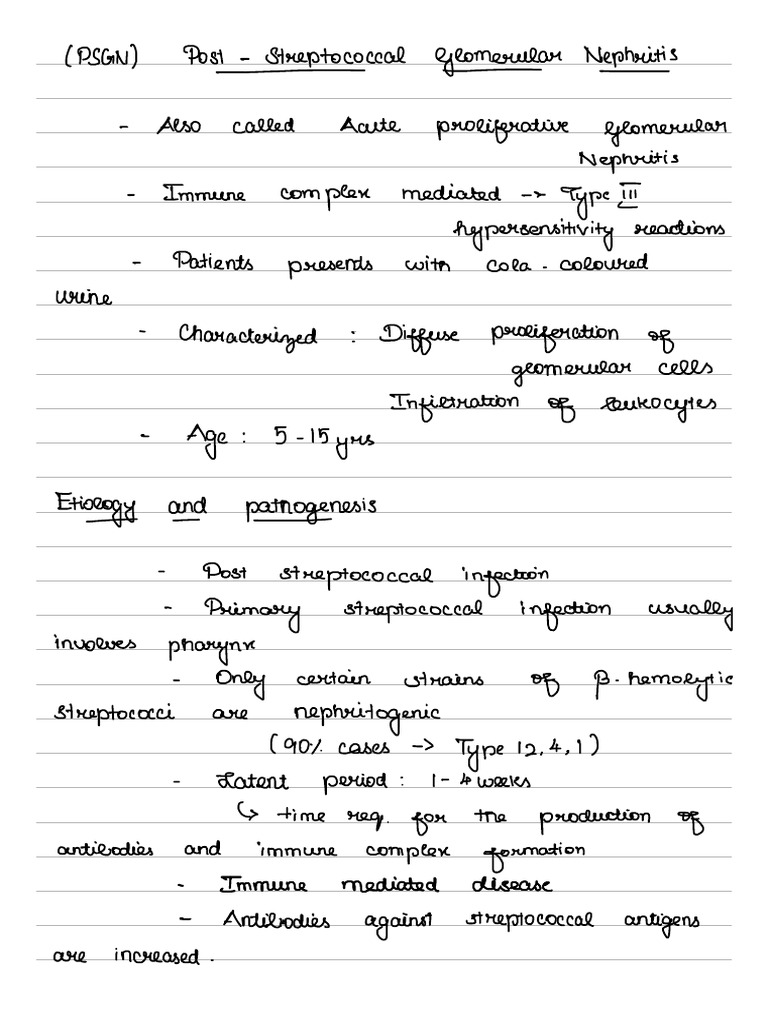 (PSGN) Post - Streptococcal Glomerular Nephritis
- Also called Acute proliferative glomerular
Nephritis
- Immune complex mediated -> Type III
hypersensitivity reactions
- Patients presents with cola - coloured
urine
- Characterized : Diffuse proliferation of
glomerular cells
Infiltration of leukocytes
- Age : 5 - 15 yrs
Etiology and pathogenesis
- Post streptococcal infection
- Primary streptococcal infection usually
involves pharynx
- Only certain strains of β - hemolytic
streptococci are nephritogenic
(90% cases -> Type 12, 4, 1)
- Latent period : 1 - 4 weeks
↳ time req. for the production of
antibodies and immune complex formation
- Immune mediated disease
- Antibodies against streptococcal antigens
are increased.